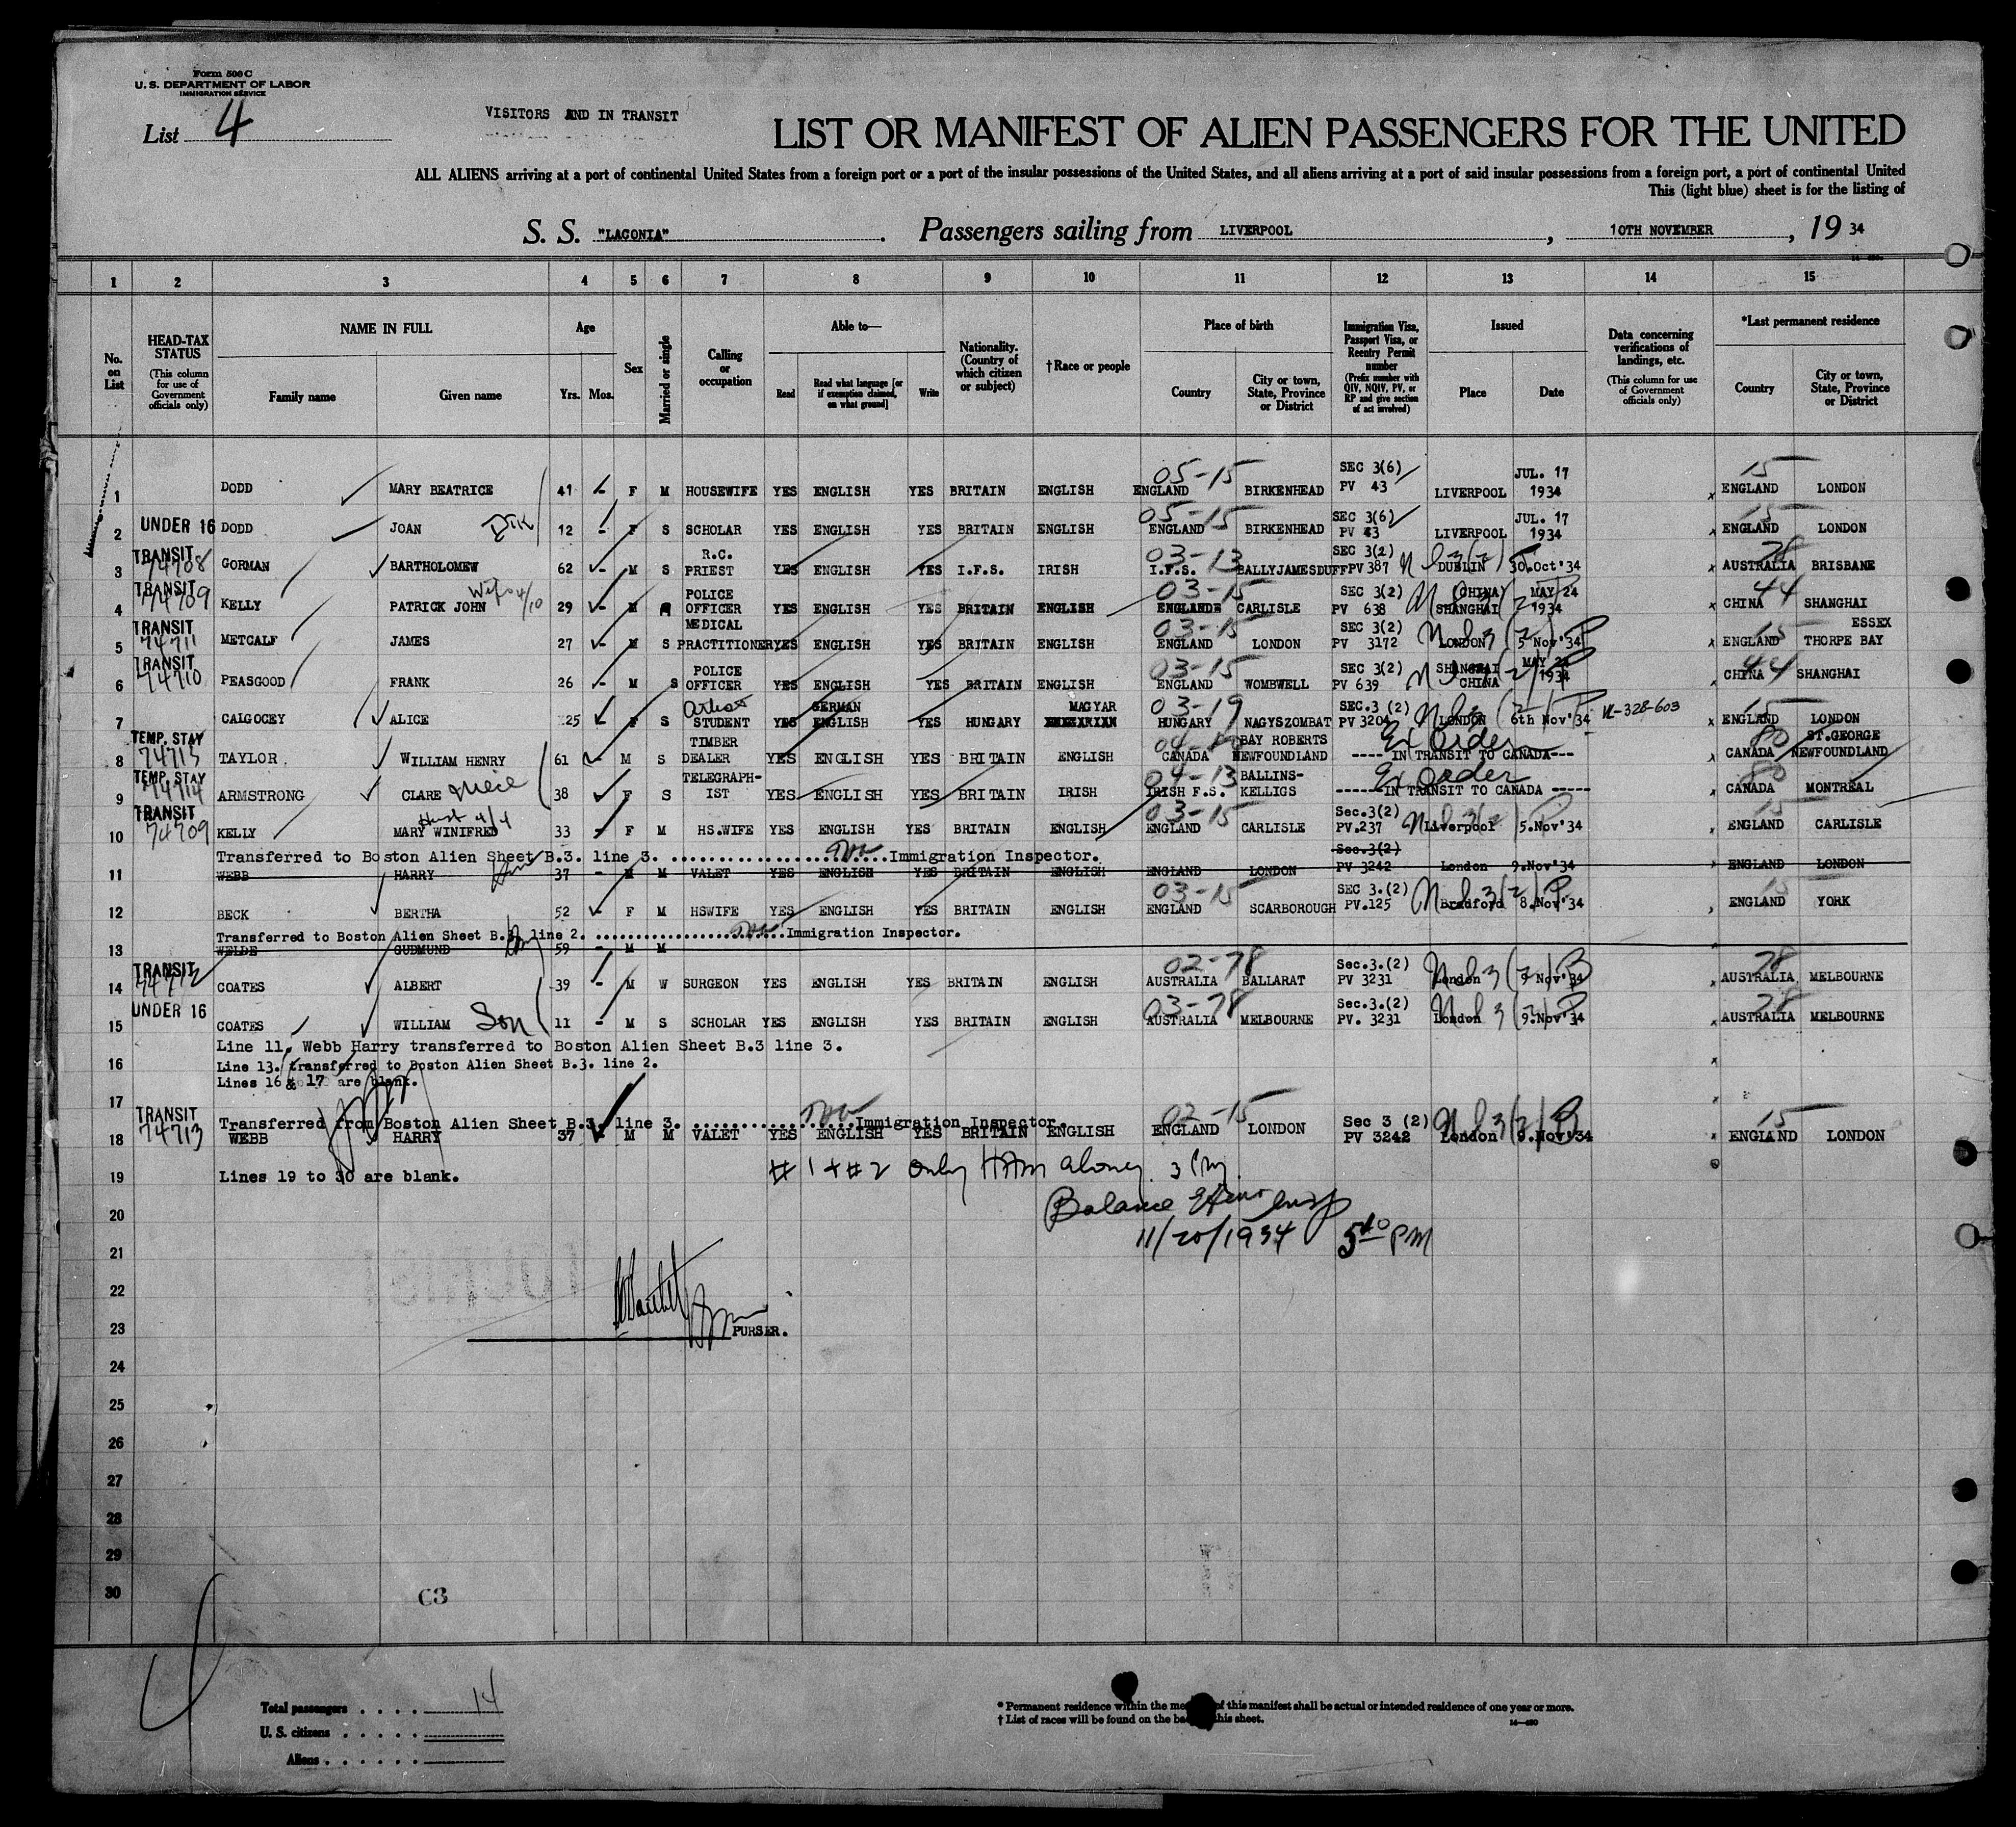 Form 500 C
U. S. DEPARTMENT OF LABOR
IMMIGRATION SERVICE
List 4
VISITORS AND IN TRANSIT
LIST OR MANIFEST OF ALIEN PASSENGERS FOR THE UNITED
ALL ALIENS arriving at a port of continental United States from a foreign port or a port of the insular possessions of the United States, and all aliens arriving at a port of said insular possessions from a foreign port, a port of continental United
This (light blue) sheet is for the listing of
S. S. "LACONIA" . Passengers sailing from LIVERPOOL , 10TH NOVEMBER , 19 34
1 2 3 4 5 6 7 8 9 10 11 12 13 14 15
No. on List
HEAD-TAX STATUS (This column for use of Government officials only)
NAME IN FULL Family name Given name
Age Yrs. Mos.
Sex
Married or single
Calling or occupation
Able to— Read Read what language [or if exemption claimed, on what ground] Write
Nationality. (Country of which citizen or subject)
†Race or people
Place of birth Country City or town, State, Province or District
Immigration Visa, Passport Visa, or Reentry Permit number (Prefix number with QIV, NQIV, PV, or RP and give section of act involved)
Issued Place Date
Data concerning verifications of landings, etc. (This column for use of Government officials only)
*Last permanent residence Country City or town, State, Province or District
1 DODD MARY BEATRICE 41 - F M HOUSEWIFE YES ENGLISH YES BRITAIN ENGLISH 05-15 ENGLAND BIRKENHEAD SEC 3(6) PV 43 LIVERPOOL JUL. 17 1934 x 15 ENGLAND LONDON
2 UNDER 16 DODD JOAN 12 - F S SCHOLAR YES ENGLISH YES BRITAIN ENGLISH 05-15 ENGLAND BIRKENHEAD SEC 3(6) PV 43 LIVERPOOL JUL. 17 1934 x 15 ENGLAND LONDON
3 TRANSIT 74708 GORMAN BARTHOLOMEW 62 - M S R.C. PRIEST YES ENGLISH YES I.F.S. IRISH 03-13 I.F.S. BALLYJAMESDUFF SEC 3(2) PV 387 DUBLIN 30.Oct'34 x 78 AUSTRALIA BRISBANE
4 TRANSIT 74709 KELLY PATRICK JOHN Wife 4/10 29 - M POLICE OFFICER YES ENGLISH YES BRITAIN ENGLISH 03-15 ENGLAND CARLISLE SEC 3(2) PV 638 (CHINA) SHANGHAI MAY 24 1934 x 44 CHINA SHANGHAI
5 TRANSIT 74711 METCALF JAMES 27 - M S MEDICAL PRACTITIONER YES ENGLISH YES BRITAIN ENGLISH 03-15 ENGLAND LONDON SEC 3(2) PV 3172 LONDON 5 Nov'34 x 15 ENGLAND ESSEX THORPE BAY
6 TRANSIT 74710 PEASGOOD FRANK 26 - M S POLICE OFFICER YES ENGLISH YES BRITAIN ENGLISH 03-15 ENGLAND WOMBWELL SEC 3(2) PV 639 SHANGHAI CHINA MAY 24 1934 x 44 CHINA SHANGHAI
7 CALGOCEY ALICE 25 F S Artist STUDENT YES GERMAN ENGLISH YES HUNGARY MAGYAR 03-19 HUNGARY NAGYSZOMBAT SEC.3 (2) PV 3204 LONDON 6th Nov'34 N-328-603 x 15 ENGLAND LONDON
8 TEMP. STAY 74715 TAYLOR WILLIAM HENRY 61 M S TIMBER DEALER YES ENGLISH YES BRITAIN ENGLISH CANADA BAY ROBERTS NEWFOUNDLAND Ex Order ---- IN TRANSIT TO CANADA--- x 80 CANADA ST.GEORGE NEWFOUNDLAND
9 TEMP. STAY 74714 ARMSTRONG CLARE niece 38 F S TELEGRAPH-IST YES ENGLISH YES BRITAIN IRISH 04-13 IRISH F.S. BALLINS-KELLIGS Ex Order -----IN TRANSIT TO CANADA ----- x 80 CANADA MONTREAL
10 TRANSIT 74709 KELLY MARY WINIFRED Husb 4/4 33 - F M HS.WIFE YES ENGLISH YES BRITAIN ENGLISH 03-15 ENGLAND CARLISLE Sec.3(2) PV.237 Liverpool 5.Nov'34 15 ENGLAND CARLISLE
Transferred to Boston Alien Sheet B.3. line 3. ........................Immigration Inspector.
11 WEBB HARRY 37 - M M VALET YES ENGLISH YES BRITAIN ENGLISH ENGLAND LONDON Sec.3(2) PV 3242 London 9.Nov'34 ENGLAND LONDON
12 BECK BERTHA 52 - F M HSWIFE YES ENGLISH YES BRITAIN ENGLISH 03-15 ENGLAND SCARBOROUGH SEC 3.(2) PV.125 Bradford 8.Nov'34 15 ENGLAND YORK
Transferred to Boston Alien Sheet B.3. line 2. ........................Immigration Inspector.
13 WELDE GUDMUND 59 - M M
14 TRANSIT 74712 COATES ALBERT 39 - M W SURGEON YES ENGLISH YES BRITAIN ENGLISH 02-78 AUSTRALIA BALLARAT Sec.3.(2) PV 3231 London 9 Nov'34 x 78 AUSTRALIA MELBOURNE
15 UNDER 16 COATES WILLIAM Son 11 - M S SCHOLAR YES ENGLISH YES BRITAIN ENGLISH 03-78 AUSTRALIA MELBOURNE Sec.3.(2) PV. 3231 London 9.Nov'34 x 78 AUSTRALIA MELBOURNE
Line 11. Webb Harry transferred to Boston Alien Sheet B.3 line 3.
16 Line 13. transferred to Boston Alien Sheet B.3. line 2.
Lines 16 & 17 are blank.
17
Transferred from Boston Alien Sheet B.3. line 3. ..................Immigration Inspector.
18 TRANSIT 74713 WEBB HARRY 37 M M VALET YES ENGLISH YES BRITAIN ENGLISH 02-15 ENGLAND LONDON Sec 3 (2) PV 3242 London 9.Nov'34 x 15 ENGLAND LONDON
19 Lines 19 to 30 are blank. # 1 + # 2 only
20 Balance
21 11/20/1934 5 40 PM
22
23 PURSER.
24
25
26
27
28
29
30 C3
Total passengers . . . . 14
U. S. citizens . . . . .
Aliens . . . . . .
* Permanent residence within the of this manifest shall be actual or intended residence of one year or more.
† List of races will be found on the this sheet.
14—480